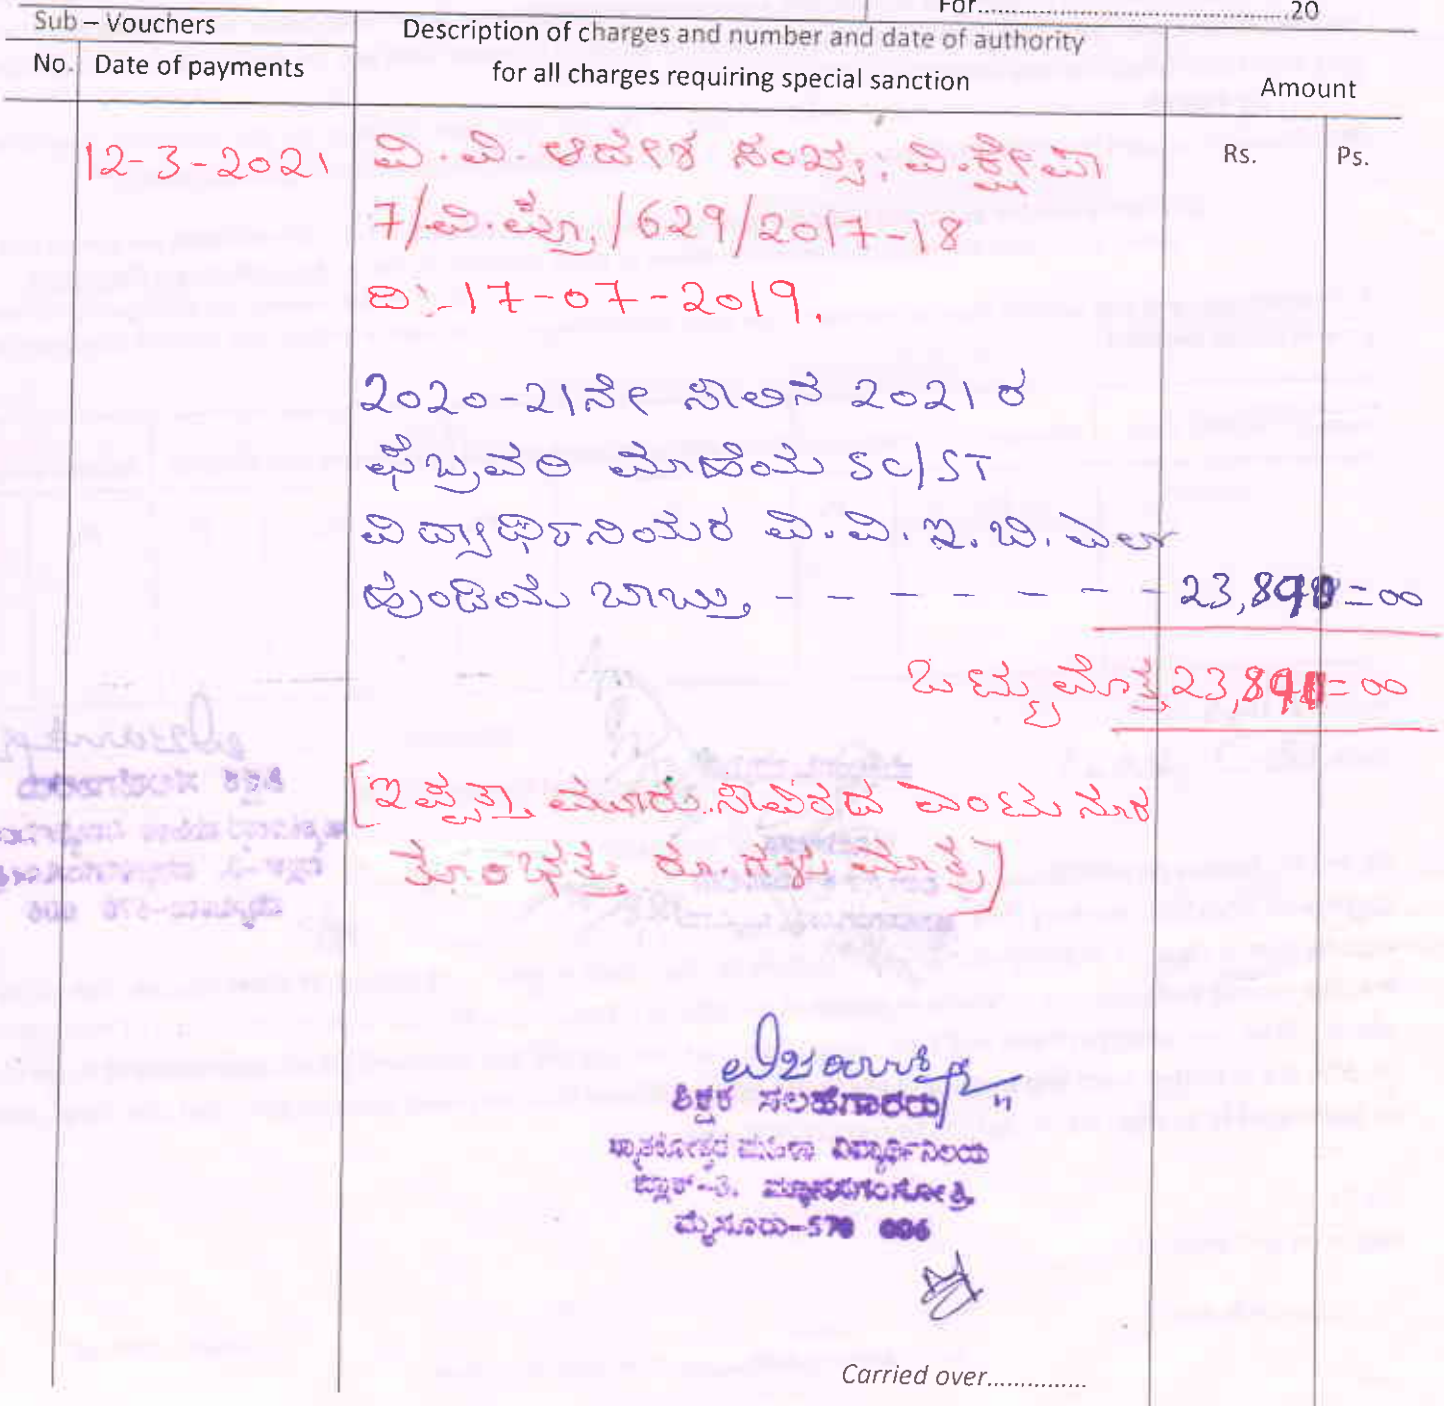 For...............................................20
Sub – Vouchers
No. Date of payments
Description of charges and number and date of authority
for all charges requiring special sanction
Amount
Rs. Ps.
12-3-2021
ವಿ.ವಿ. ಆದೇಶ ಸಂಖ್ಯೆ: ವಿ.ಕ್ಷೇಪಾ
7/ವಿ.ಪ್ರೊ./629/2017-18
ದಿ:-17-07-2019.
2020-21ನೇ ಸಾಲಿನ 2021 ರ
ಫೆಬ್ರವರಿ ಮಾಹೆಯ SC/ST
ವಿದ್ಯಾರ್ಥಿನಿಯರ ವಿ.ವಿ.ಇ.ಬಿ.ಎಲ್
ಹುಂಡಿಯ ಬಾಬ್ತು - - - - - - - - 23,890=00
ಒಟ್ಟು ಮೊತ್ತ 23,890=00
[ಇಪ್ಪತ್ತು ಮೂರು ಸಾವಿರದ ಎಂಟು ನೂರ
ತೊಂಭತ್ತು ರೂ.ಗಳು ಮಾತ್ರ]
ಶಿಕ್ಷಕ ಸಲಹೆಗಾರರು
ಸ್ನಾತಕೋತ್ತರ ಮಹಿಳಾ ವಿದ್ಯಾರ್ಥಿನಿಲಯ
ಬ್ಲಾಕ್-3. ಮಾನಸಗಂಗೋತ್ರಿ,
ಮೈಸೂರು-570 006
Carried over...............